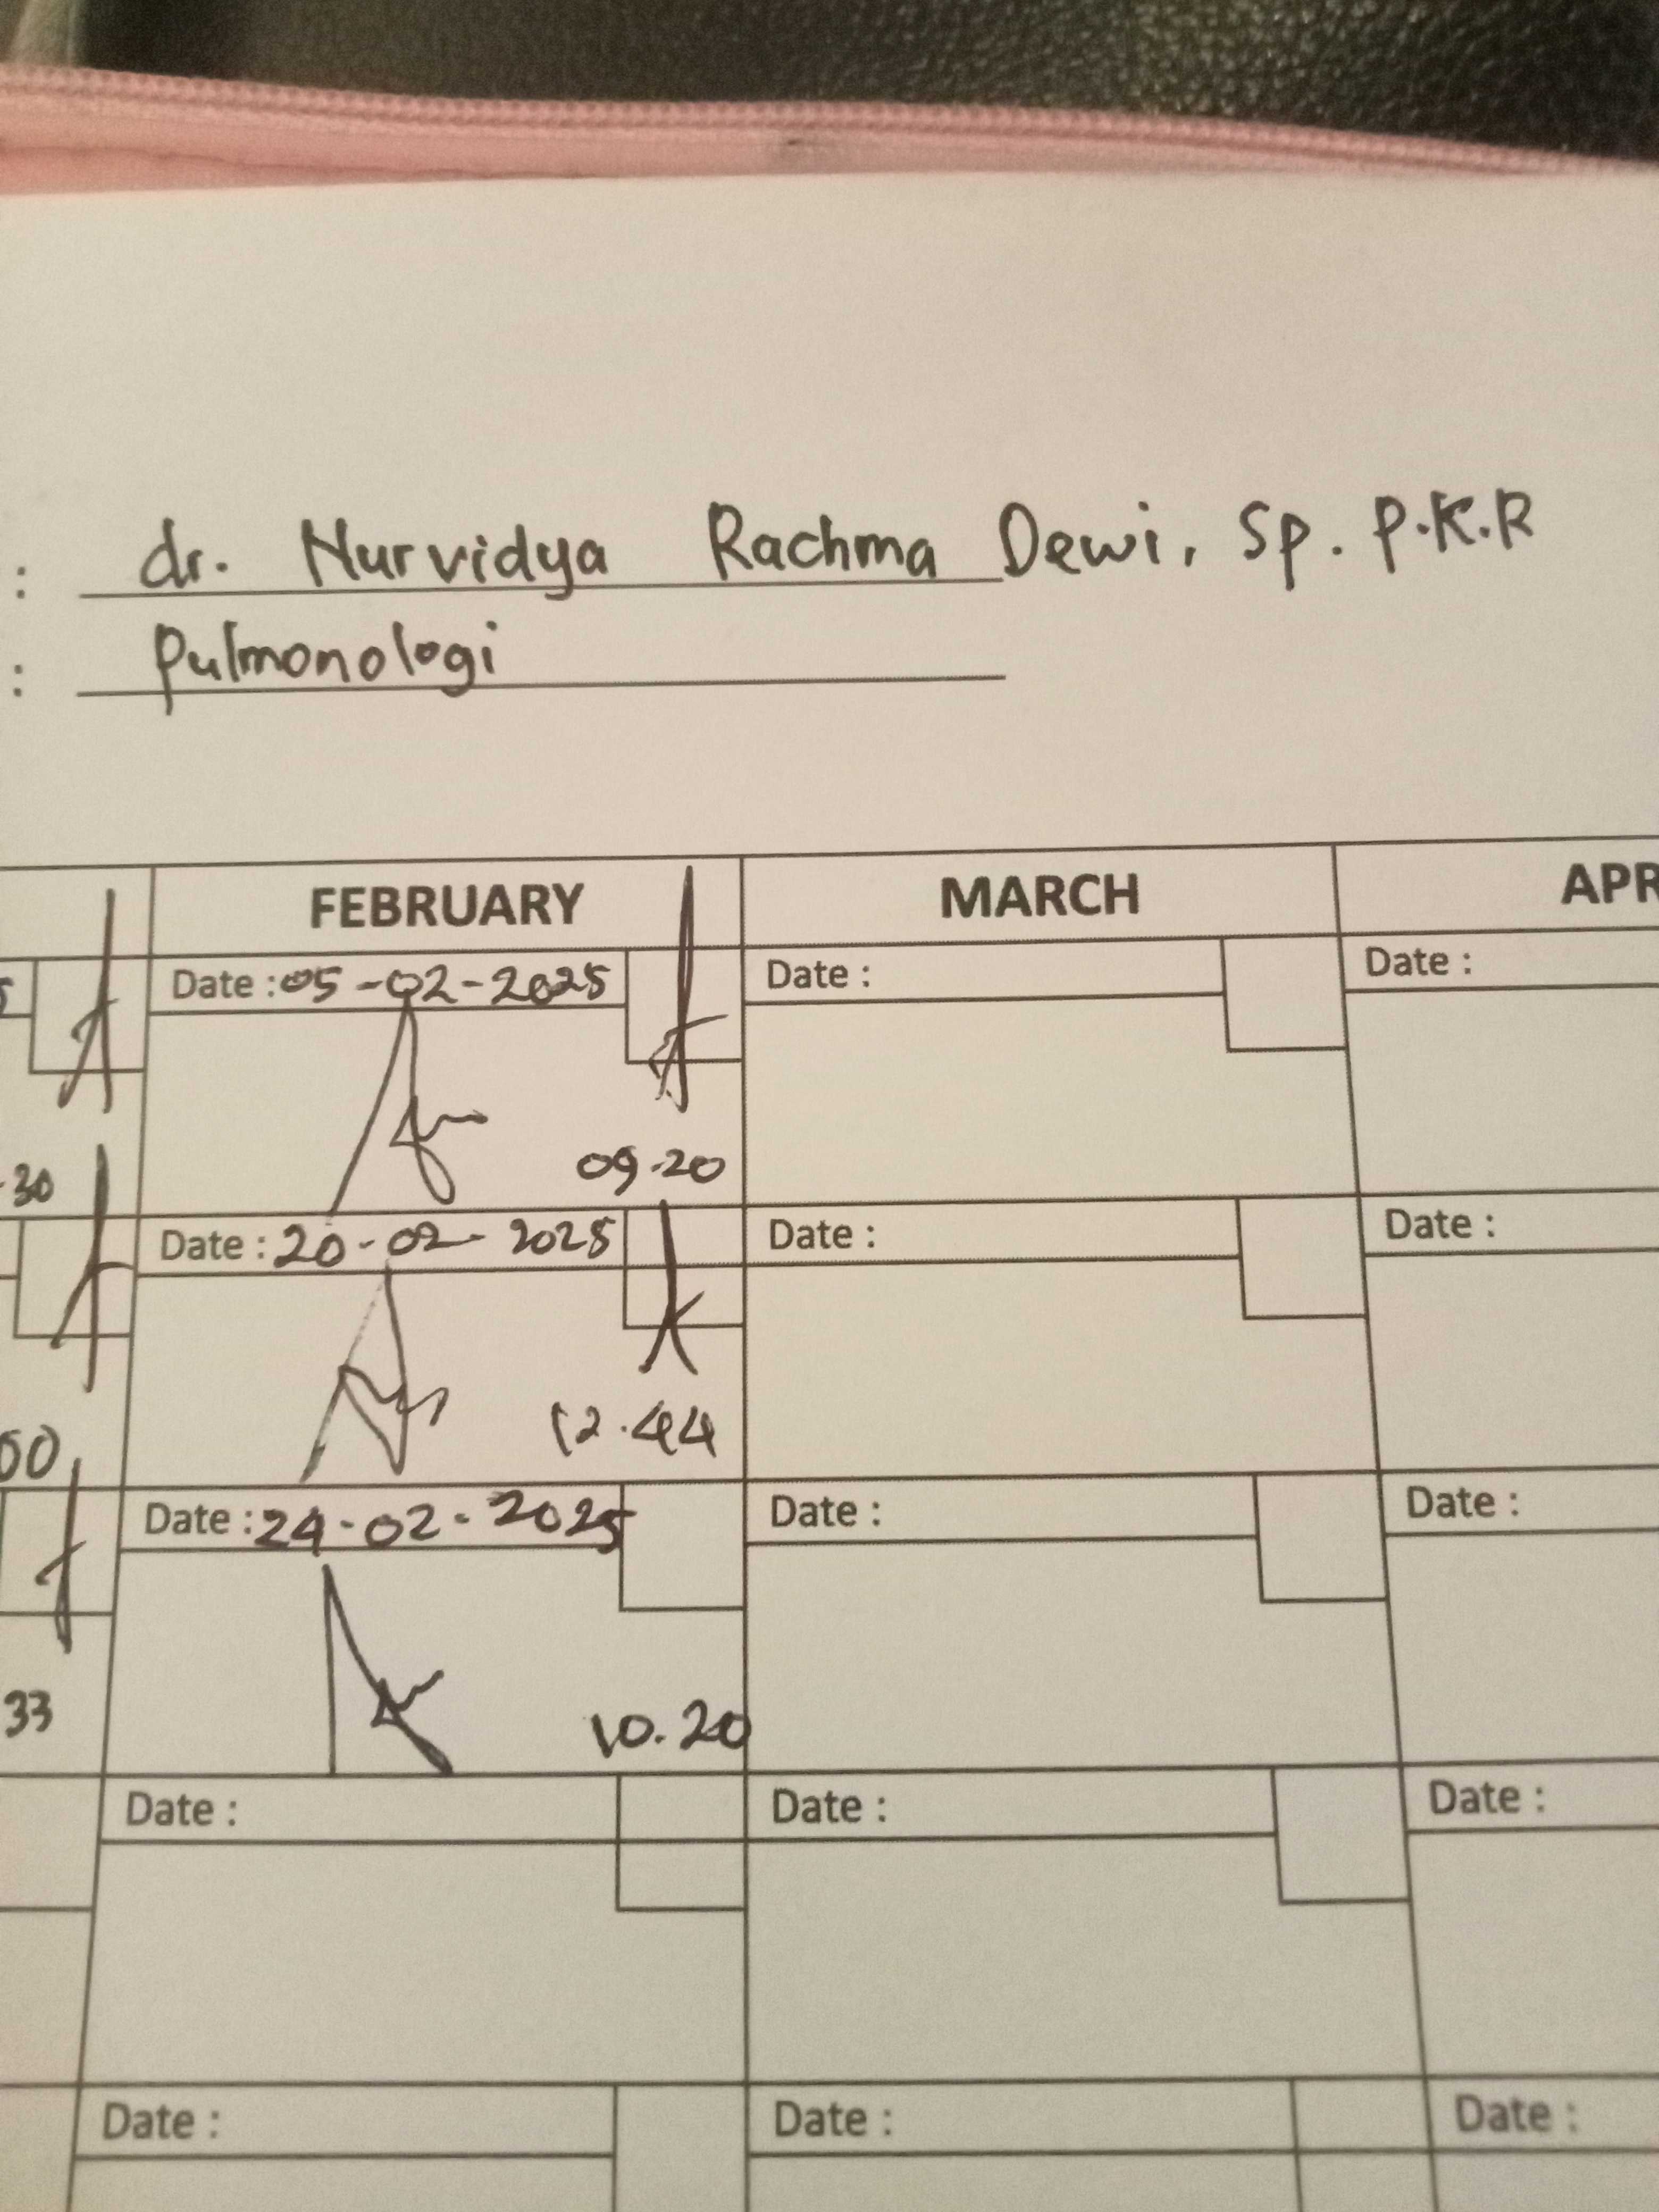 : dr. Nurvidya Rachma Dewi, Sp. P.K.R
: Pulmonologi
FEBRUARY MARCH APR
Date : 05-02-2025 Date : Date :
09.20
30
Date : 20-02-2025 Date : Date :
12.44
00
Date : 24-02-2025 Date : Date :
33 10.20
Date : Date : Date :
Date : Date : Date :